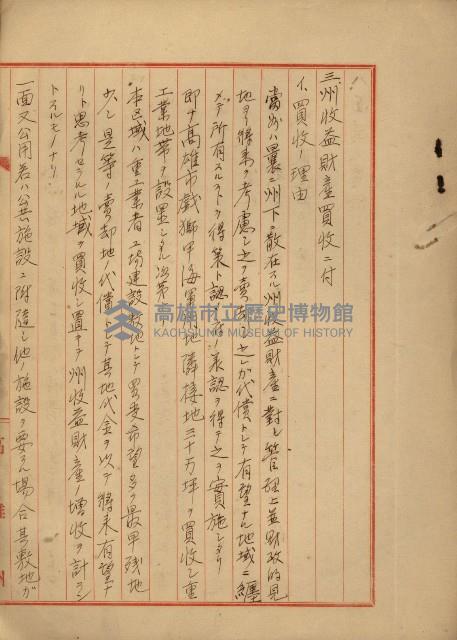 三、州收益財產買收ニ付
イ、買收ノ理由
當州ハ曩ニ州下ニ散在スル州收益財產ニ對シ管理上並財政的見
地ヨリ將來ヲ考慮シ之ヲ賣却シ之レガ代償トシテ有望ナル地域ニ纏
メテ所有スルヲ以テ得策ト認メ承認ヲ得テ之ヲ實施シタリ
即チ高雄市戲獅甲海軍用地隣接地三十万坪ヲ買收シ重
工業地帶ヲ設置シタル次第
本区域ハ重工業者工場建設敷地トシテ買受希望多ク最早殘地
少シ是等ノ賣却地ノ代償トシテ其地代金ヲ以テ將來有望ナ
リト思考セラルル地域ヲ買收シ置キテ州收益財產ノ增收ヲ計ラン
トスルモノナリ
一面又公用若ハ公共施設ニ附隨シ他ノ施設ヲ要スル場合其敷地ガ
高雄市立歷史博物館
KAOHSIUNG MUSEUM OF HISTORY
高雄州